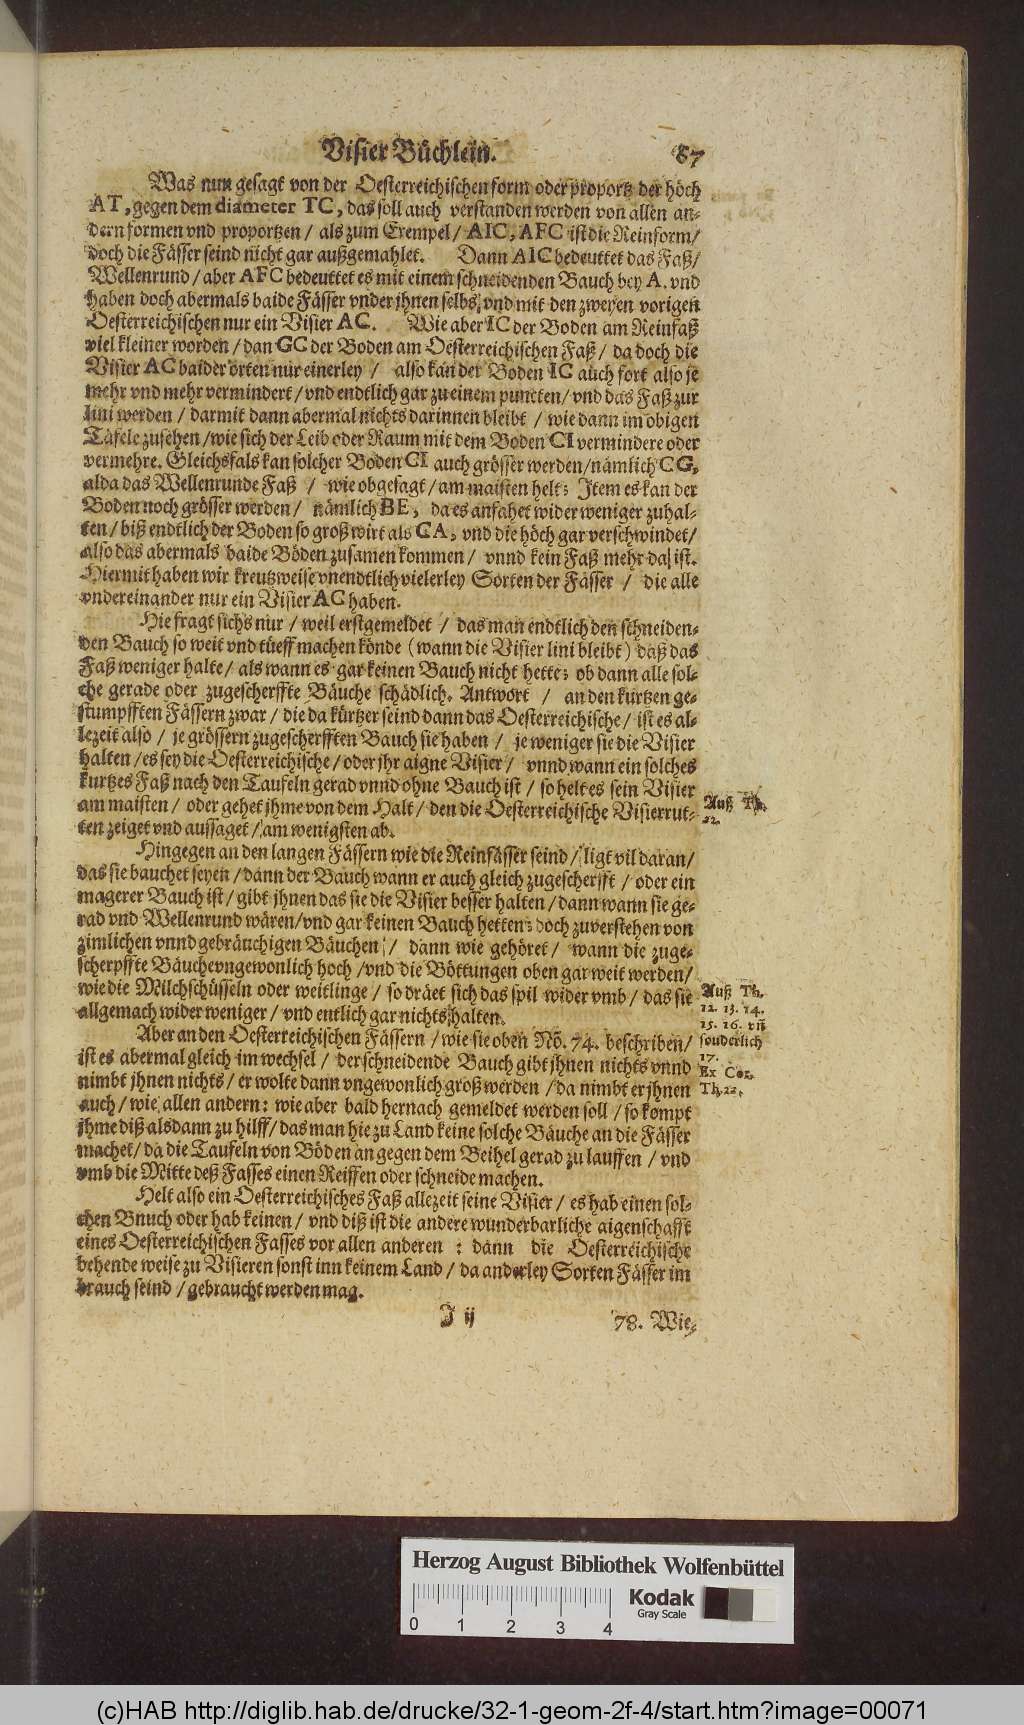 Visier Büchlein.
67
Was nun gesagt von der Oesterreichischen form oder proportz der höch
AT, gegen dem diameter TC, das soll auch verstanden werden von allen an-
dern formen vnd proportzen / als zum Exempel / AIC, AFC ist die Reinform /
doch die Fässer seind nicht gar außgemahlet. Dann AIC bedeuttet das Faß /
Wellenrund / aber AFC bedeuttet es mit einem schneidenden Bauch bey A. vnd
haben doch abermals baide Fässer vnder jhnen selbs, vnd mit den zweyen vorigen
Oesterreichischen nur ein Visier AC. Wie aber IC der Boden am Reinfaß
viel kleiner worden / dan GC der Boden am Oesterreichischen Faß / da doch die
Visier AC baider orten nur einerley / also kan der Boden IC auch fort also je
mehr vnd mehr vermindert / vnd endtlich gar zu einem puncten / vnd das Faß zur
lini werden / darmit dann abermal nichts darinnen bleibt / wie dann im obigen
Täfele zusehen / wie sich der Leib oder Raum mit dem Boden CI vermindere oder
vermehre. Gleichsfals kan solcher Boden CI auch grösser werden / nämlich CG,
alda das Wellenrunde Faß / wie obgesagt / am maisten helt: Item es kan der
Boden noch grösser werden / nämlich BE, da es anfahet wider weniger zuhal-
ten / biß endtlich der Boden so groß wirt als CA, vnd die höch gar verschwindet /
also das abermals baide Böden zusamen kommen / vnnd kein Faß mehr da ist.
Hiermit haben wir kreutzweise vnendtlich vielerley Sorten der Fässer / die alle
vndereinander nur ein Visier AC haben.
Hie fragt sichs nur / weil erstgemeldet / das man endtlich den schneiden-
den Bauch so weit vnd tüeff machen könde (wann die Visier lini bleibt) daß das
Faß weniger halte / als wann es gar keinen Bauch nicht hette: ob dann alle sol-
che gerade oder zugescherffte Bäuche schädlich. Antwort / an den kurtzen ge-
stumpfften Fässern zwar / die da kürtzer seind dann das Oesterreichische / ist es al-
lezeit also / je grössern zugescherfften Bauch sie haben / je weniger sie die Visier
halten / es sey die Oesterreichische / oder jhr aigne Visier / vnnd wann ein solches
kurtzes Faß nach den Taufeln gerad vnnd ohne Bauch ist / so helt es sein Visier
am maisten / oder gehet jhme von dem Halt / den die Oesterreichische Visierrut-
ten zeiget vnd aussaget / am wenigsten ab.
Auß Th.
22.
Hingegen an den langen Fässern wie die Reinfässer seind / ligt vil daran /
das sie bauchet seyen / dann der Bauch wann er auch gleich zugescherfft / oder ein
magerer Bauch ist / gibt jhnen das sie die Visier besser halten / dann wann sie ge-
rad vnd Wellenrund wären / vnd gar keinen Bauch hetten: doch zuverstehen von
zimlichen vnnd gebräuchigen Bäuchen / dann wie gehöret / wann die zuge-
scherpffte Bäuche vngewonlich hoch / vnd die Böttungen oben gar weit werden /
wie die Milchschüsseln oder weitlinge / so dräet sich das spil wider vmb / das sie
allgemach wider weniger / vnd entlich gar nichts halten.
Auß Th.
12. 13. 14.
15. 16. vñ
sonderlich
17.
Ex Cor.
Th. 22.
Aber an den Oesterreichischen Fässern / wie sie oben Nõ. 74. beschriben /
ist es abermal gleich im wechsel / der schneidende Bauch gibt jhnen nichts vnnd
nimbt jhnen nichts / er wolte dann vngewonlich groß werden / da nimbt er jhnen
auch / wie allen andern: wie aber bald hernach gemeldet werden soll / so kompt
jhme diß alsdann zu hilff / das man hie zu Land keine solche Bäuche an die Fässer
machet / da die Taufeln von Böden an gegen dem Beihel gerad zu lauffen / vnd
vmb die Mitte deß Fasses einen Reiffen oder schneide machen.
Helt also ein Oesterreichisches Faß allezeit seine Visier / es hab einen sol-
chen Bnuch oder hab keinen / vnd diß ist die andere wunderbarliche aigenschafft
eines Oesterreichischen Fasses vor allen anderen : dann die Oesterreichische
behende weise zu Visieren sonst inn keinem Land / da anderley Sorten Fässer im
brauch seind / gebraucht werden mag.
I ij
78. Wie-
Herzog August Bibliothek Wolfenbüttel
0 1 2 3 4
Kodak
Gray Scale
(c)HAB http://diglib.hab.de/drucke/32-1-geom-2f-4/start.htm?image=00071